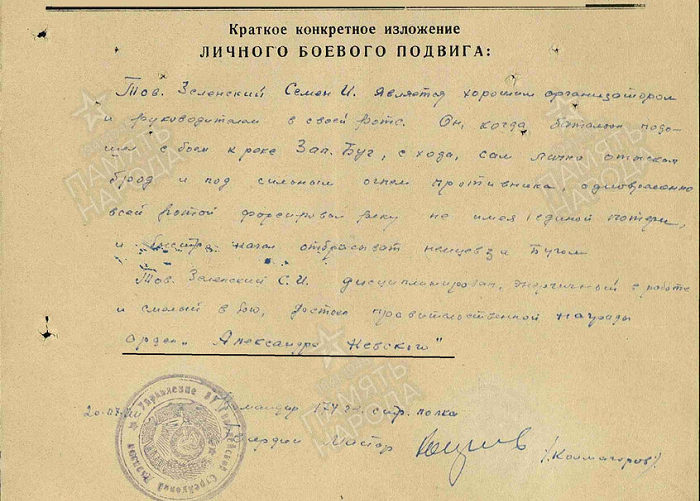 Краткое конкретное изложение
ЛИЧНОГО БОЕВОГО ПОДВИГА:
Тов. Зеленский Семен И. является хорошим организатором
и руководителем в своей роте. Он, когда батальон подо-
шел с боем к реке Зап. Буг, с хода, сам лично отыскал
брод и под сильным огнем противника, одновременно
всей ротой форсировал реку не имея единой потери,
и быстро начал отбрасывать немцев за Бугом
Тов. Зеленский С.И. дисциплинирован, энергичный в работе
и смелый в бою, достоен правительственной награды
орден „Александра Невского"
20.07.44 Командир 174 гв. стр. полка
Гвардии (Колмагоров)
ПАМЯТЬ НАРОДА
ПАМЯТЬ НАРОДА
ПАМЯТЬ НАРОДА